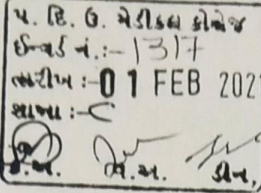 પ. દિ. ઉ. મેડીકલ કોલેજ
ઈન્વર્ડ નં.:- 1317
તારીખ :- 01 FEB 202
શાખા :- C
ડીન,